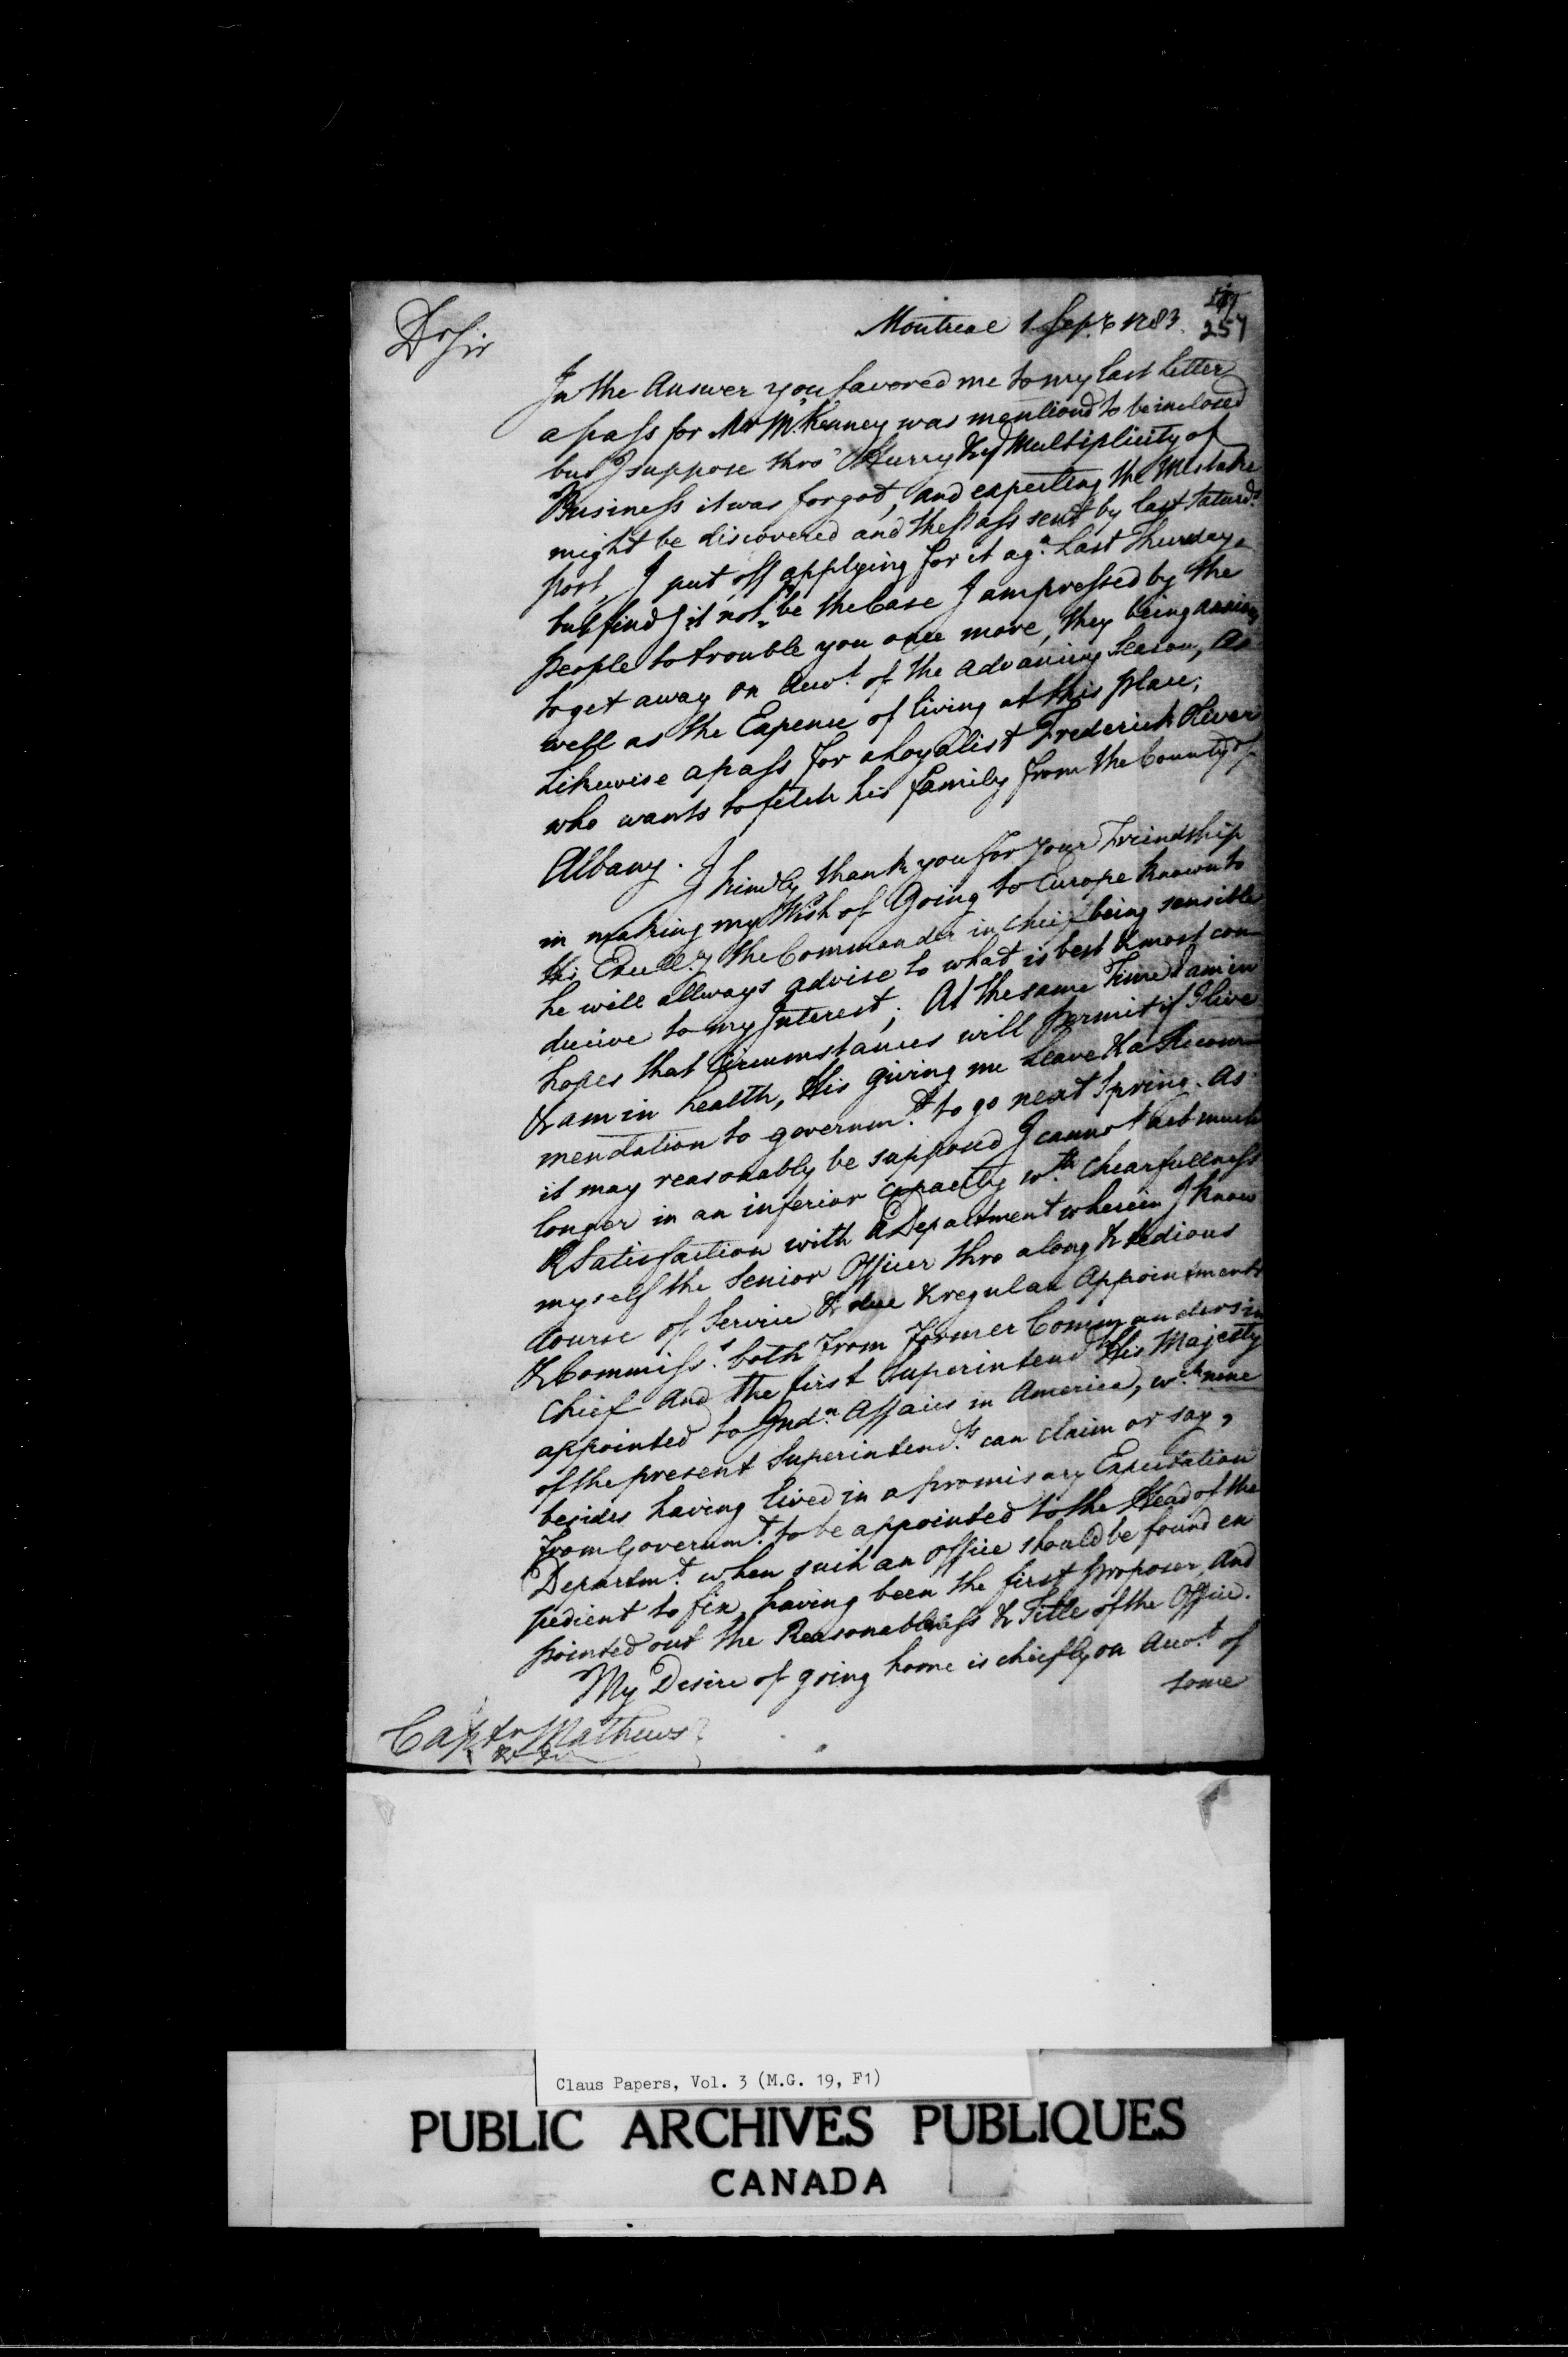 Montreal 1 Sepr. 1783.
257
Dr Sir
In the Answer you favored me to my last Letter
a pass for Mr McKenney was mentiond to be inclosed
but I suppose thro' Hurry & Multiplicity of
Business it was forgot, and expecting the Mistake
might be discovered and the pass sent by last Saturds.
post, I put off applying for it agn. Last Thursday
but find g it not to be the Case I am pressed by the
people to trouble you once more, they being anxious
to get away on Accot. of the advancing Season, As
well as the Expence of living at this place;
Likewise a pass for a Loyalist Frederick Oliver
who wants to fetch his family from the County of
Albany.
I kindly thank you for your Friendship
in making my Wish of Going to Europe known to
His Excelly. the Commander in Cheif being sensible
he will allways advise to what is best & most con-
ducive to my Interest; At the same Time I am in
hopes that Circumstances will permit if I live
& am in health, His giving me Leave & a Recom-
mendation to governmt. to go next Spring. As
it may reasonably be supposed I cannot act much
longer in an inferior Capacity wth. Chearfullness
& Satisfaction with a Department wherein I know
myself the Senior Officer thro a long & tedious
Course of Service & due & regular Appointments
& Commisss. both from former Commanders in
Chief And the first Superintendt. His Majesty
appointed to Indn. Affairs in America, wch. none
of the present Superintendts. can claim or say,
besides having lived in a promisary Expectation
from Governmt. to be appointed to the Head of the
Departmt. when such an Office should be found ex
pedient to fix, having been the first proposer, and
pointed out the Reasonableness & Title of the Office.
My Desire of going home is chiefly on Accot. of
some
Captn Mathews
Claus Papers, Vol. 3 (M.G. 19, F1)
PUBLIC ARCHIVES PUBLIQUES
CANADA